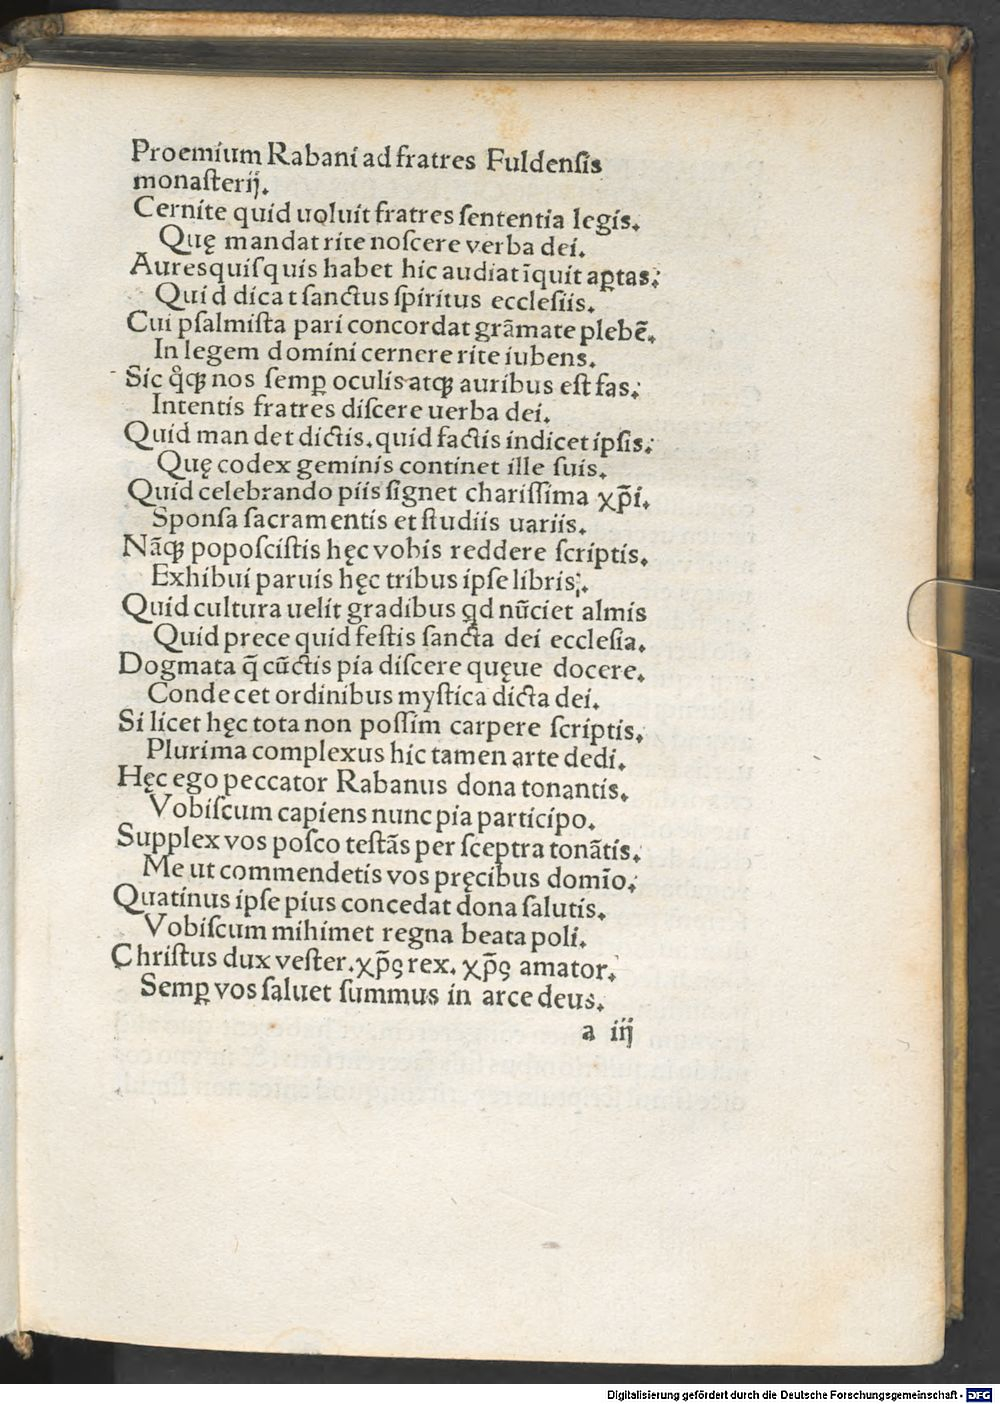 Proemium Rabani ad fratres Fuldenſis
monaſterij.
Cernite quid uoluit fratres ſententia legis.
Quę mandat rite noſcere verba dei.
Aures quiſquis habet hic audiat īquit aꝑtas:
Quid dicat ſanctus ſpiritus eccleſiis.
Cui pſalmiſta pari concordat grāmate plebē.
In legem domini cernere rite iubens.
Sic qͦqꝫ nos ſemꝑ oculis atqꝫ auribus eſt fas:
Intentis fratres diſcere uerba dei.
Quid mandet dictis. quid factis indicet ipſis:
Quę codex geminis continet ille ſuis.
Quid celebrando piis ſignet chariſſima χp̄i.
Sponſa ſacramentis et ſtudiis uariis.
Nāqꝫ popoſciſtis hęc vobis reddere ſcriptis.
Exhibui paruis hęc tribus ipſe libris:.
Quid cultura uelit gradibus qd nūciet almis
Quid prece quid feſtis ſancta dei eccleſia.
Dogmata q̄ cūctis pia diſcere quęue docere.
Condecet ordinibus myſtica dicta dei.
Si licet hęc tota non poſſim carpere ſcriptis.
Plurima complexus hic tamen arte dedi.
Hęc ego peccator Rabanus dona tonantis.
Vobiſcum capiens nunc pia participo.
Supplex vos poſco teſtās per ſceptra tonātis.
Me ut commendetis vos pręcibus domīo:
Quatinus ipſe pius concedat dona ſalutis.
Vobiſcum mihimet regna beata poli.
Chriſtus dux veſter. χp̄ꝯ rex. χp̄ꝯ amator.
Semꝑ vos ſaluet ſummus in arce deus.
a iij
Digitalisierung gefördert durch die Deutsche Forschungsgemeinschaft - DFG